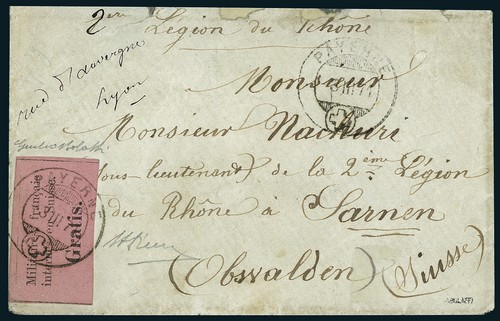 2ère Légion du Rhône
rue d'Auvergne
Lyon
PAYERNE
Monsieur
Monsieur Nachuri
Sous-lieutenant de la 2ème Légion
du Rhône à Sarnen
(Obwalden) (Suisse)
PAYERNE
Militaires française
internés en Suisse.
Gratis.